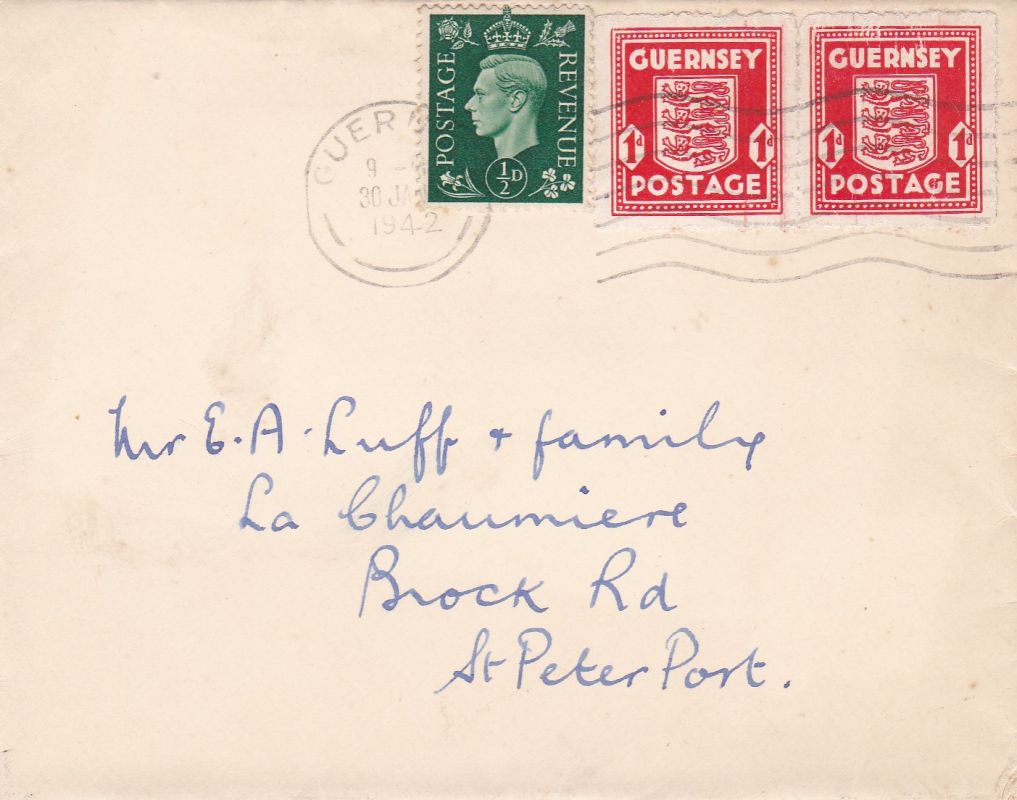 GUER
9 -
30 JA
1942
POSTAGE
REVENUE
½D
GUERNSEY
1d 1d
POSTAGE
GUERNSEY
1d 1d
POSTAGE
Mr E. A. Luff + family
La Chaumiere
Brock Rd
St Peter Port.